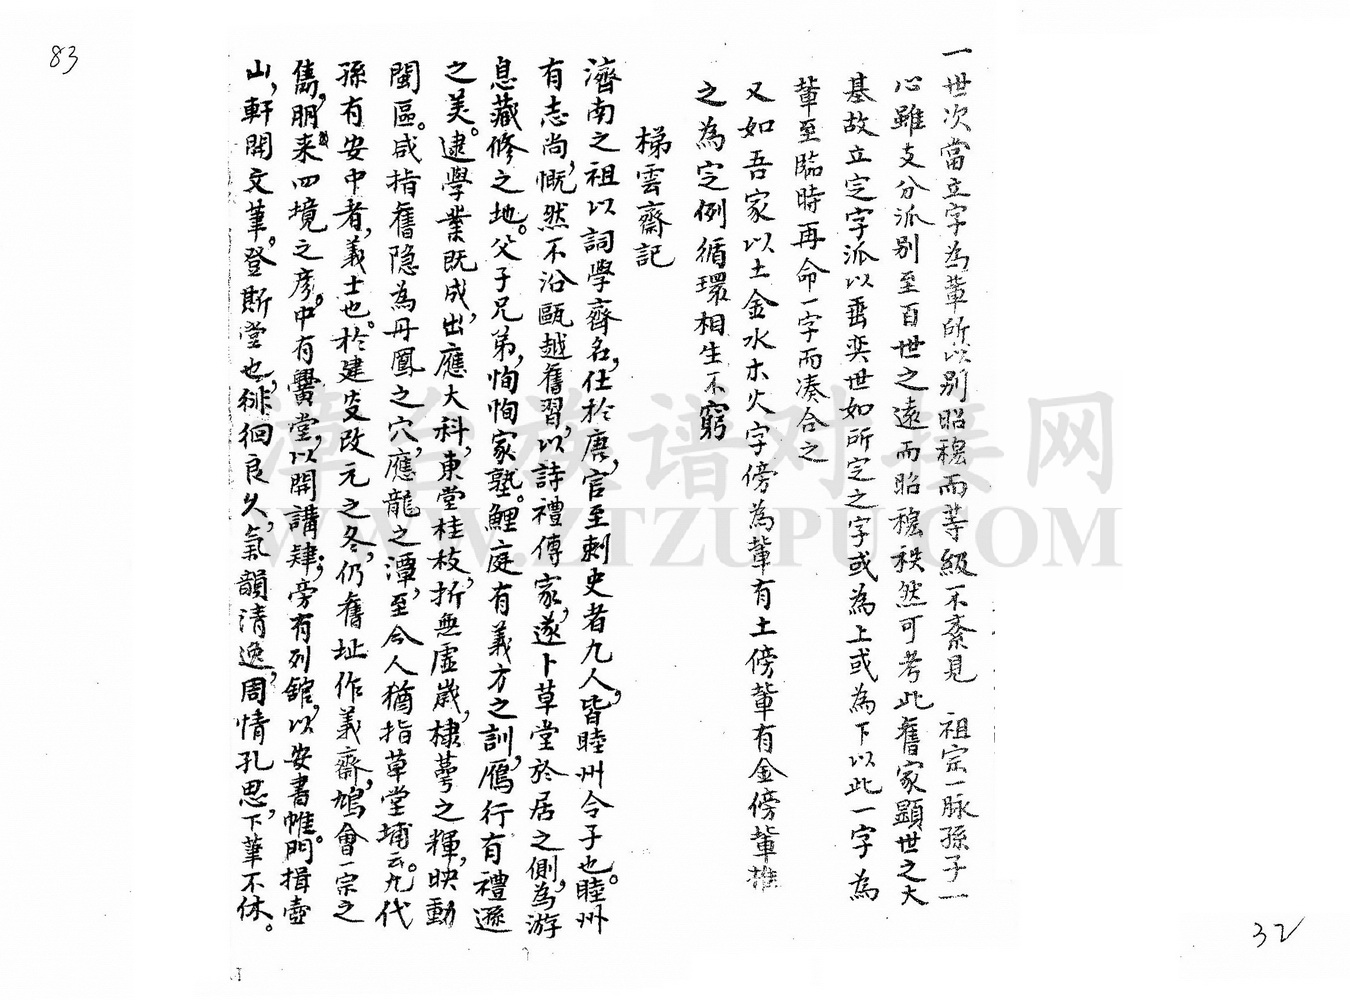 83
一世次當立字為輩所以别昭穆而等級不紊見 祖宗一脉孫子一
心雖支分派别至百世之遠而昭穆秩然可考此舊家顯世之大
基故立定字派以垂奕世如所定之字或為上或為下以此一字為
輩至臨時再命一字而凑合之
又如吾家以土金水木火字傍為輩有土傍輩有金傍輩推
之為定例循環相生不窮
梯雲齋記
濟南之祖以詞學齊名，仕於唐，官至刺史者九人，皆睦州令子也。睦州
有志尚，慨然不沿甌越舊習，以詩禮傳家，遂卜草堂於居之側，為游
息藏修之地。父子兄弟，恂恂家塾。鯉庭有義方之訓，鴈行有禮遜
之美。逮學業既成，出應大科，東堂桂枝，折無虛歲，棣萼之輝，映動
閩區。咸指舊隐為丹鳳之穴，應龍之潭，至今人猶指草堂埔云。九代
孫有安中者，義士也。於建炎改元之冬，仍舊址作義齋，鳩會一宗之
雋，朋来四境之彦。中有黌堂，以開講肄，旁有列舘，以安書帷。門揖壺
山，軒開文筆。登斯堂也，徘徊良久，氣韻清逸，周情孔思，下筆不休。
32
漳台族谱对接网
WWW.ZTZUPU.COM